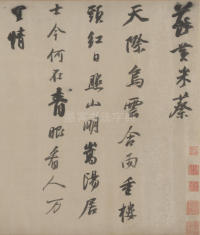 苏黄米蔡
天際烏雲含雨重樓
頭紅日照山明嵩陽居
士今何在青眼看人万
里情